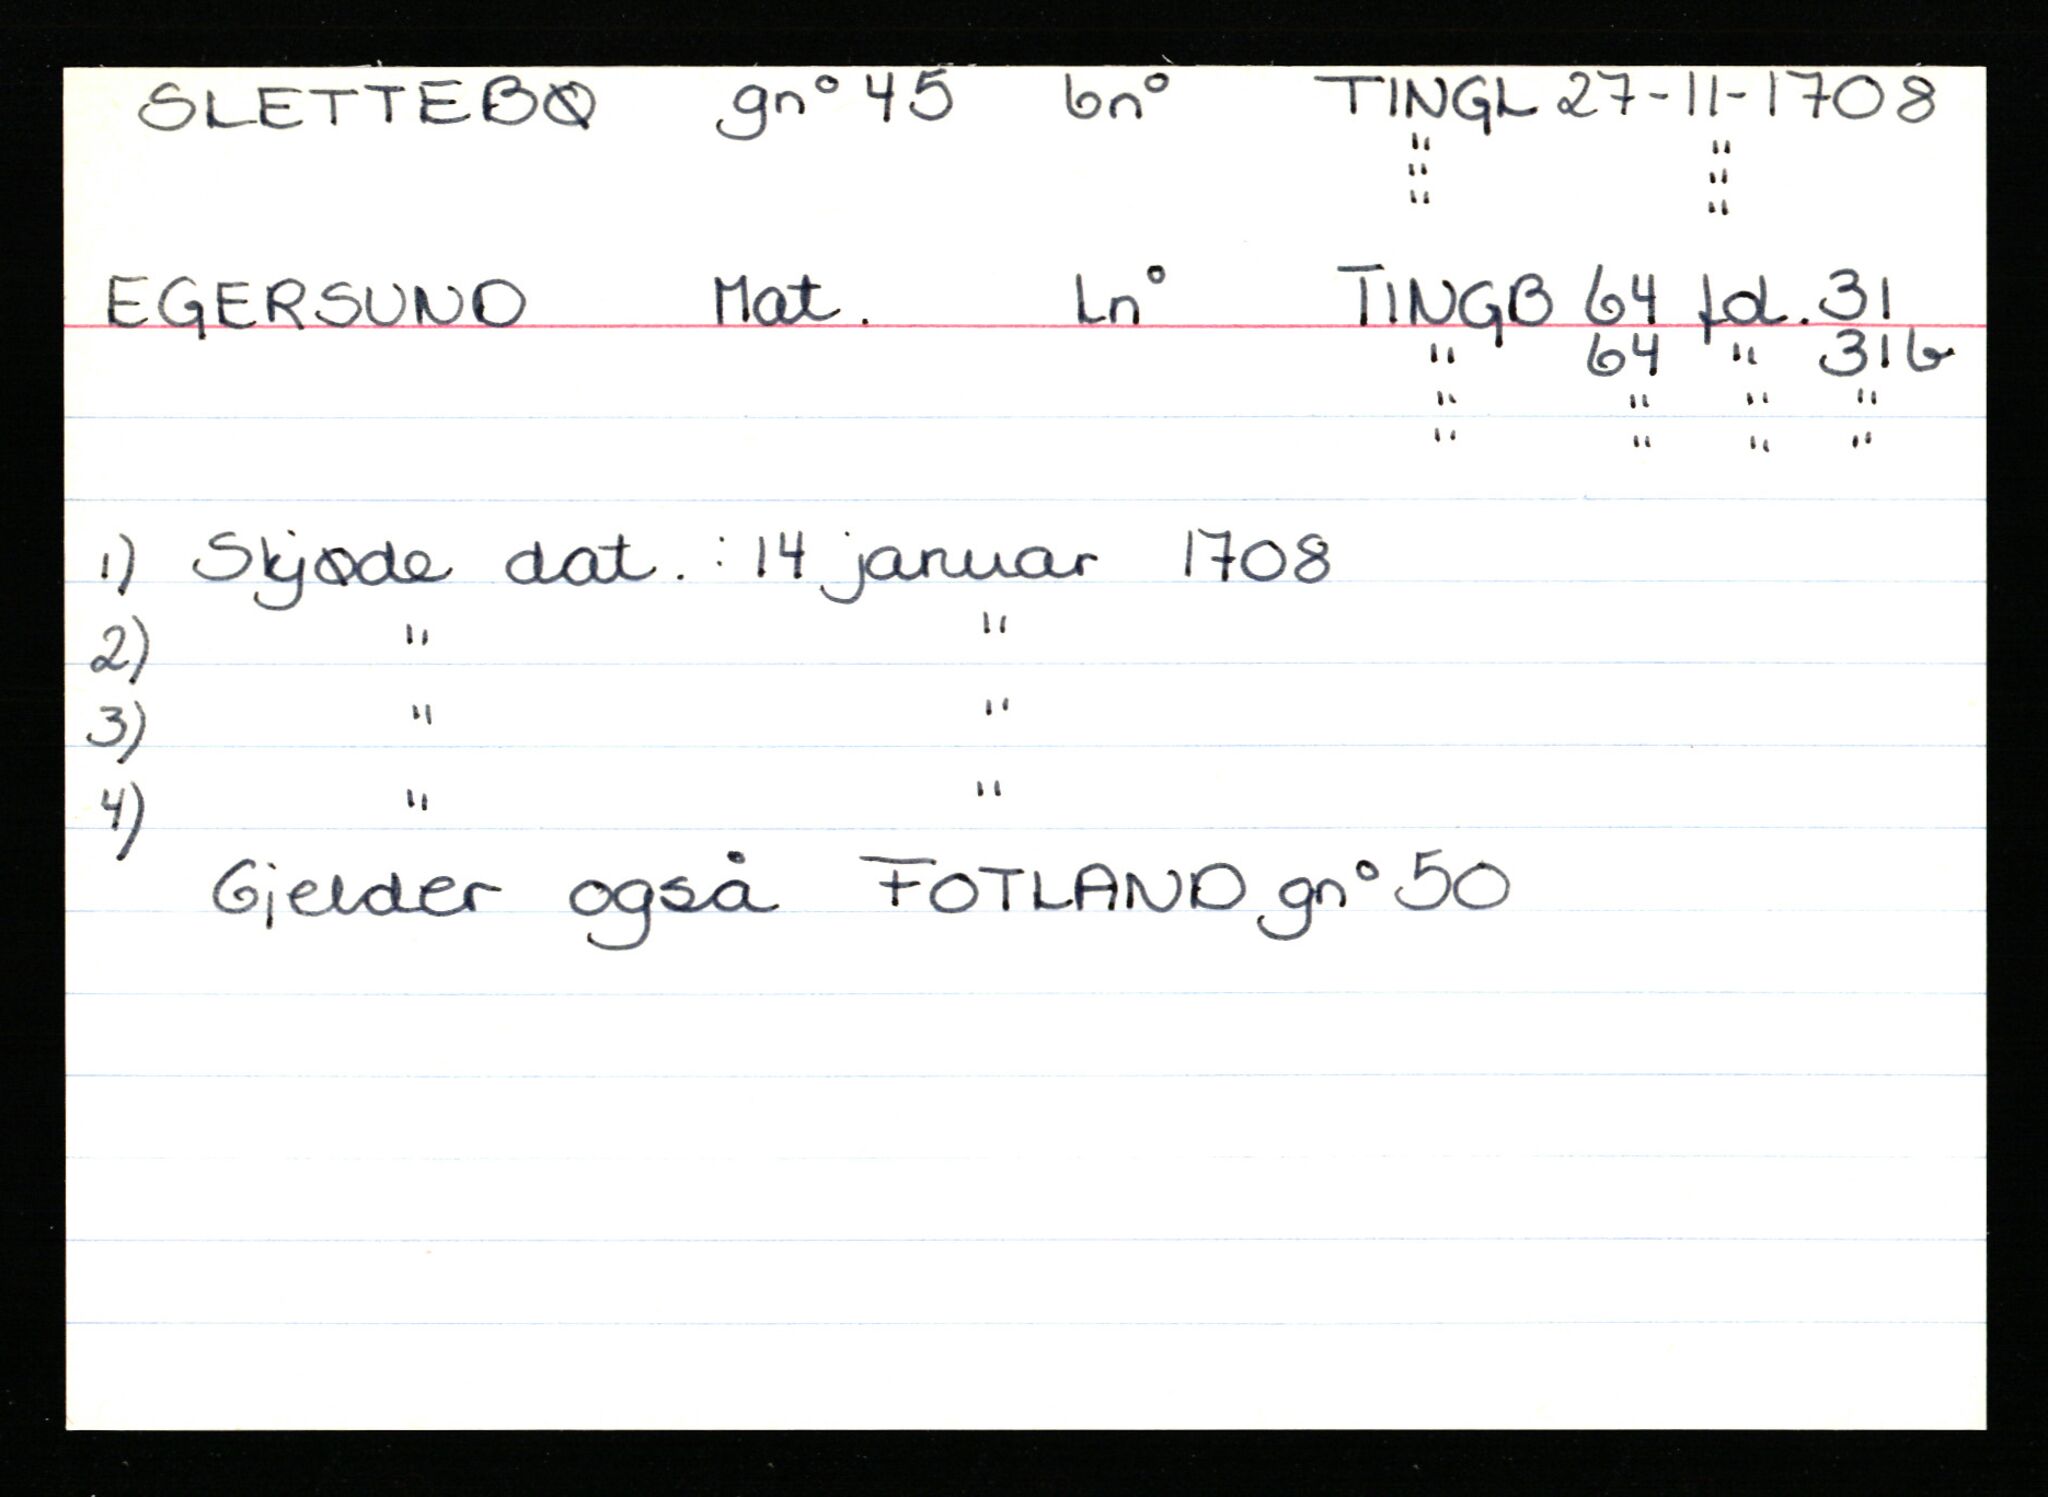 SLETTEBØ gn° 45 bn° TINGL 27-11-1708
" "
" "
" "
EGERSUND Mat. Ln° TINGB 64 fol. 31
" 64 " 31b
" " " "
" " " "
1) Skjøde dat. : 14 januar 1708
2) " "
3) " "
4) " "
Gjelder også FOTLAND gn° 50